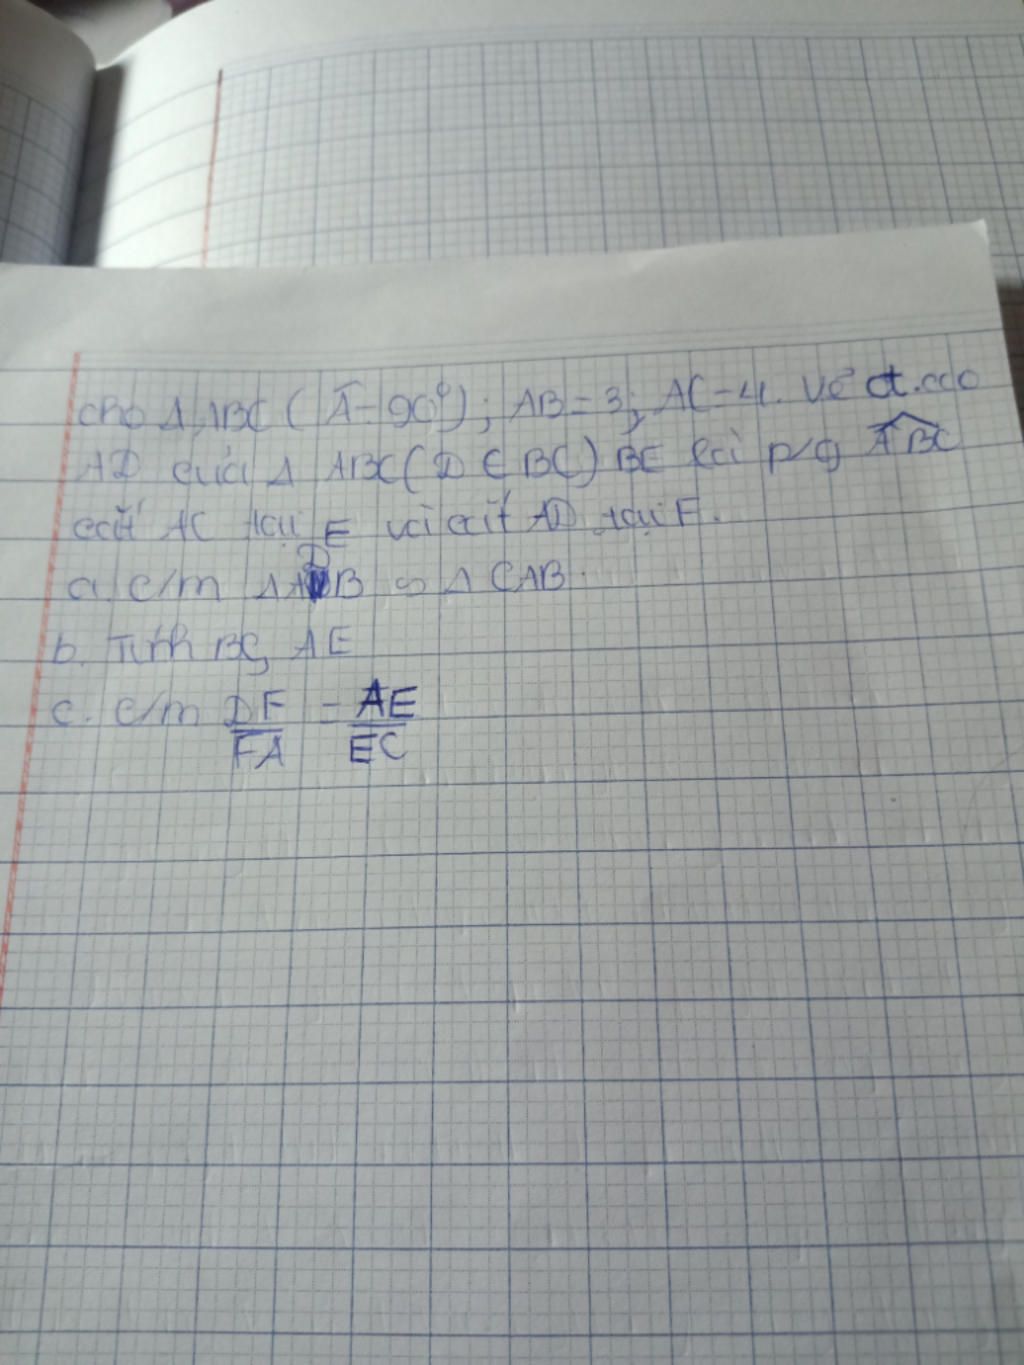 cho Δ ABC ( Â = 90⁰); AB = 3; AC = 4. Vẽ đt. cao
AD của Δ ABC ( D ∈ BC) BE là p/g ABC
cắt AC tại E và cắt AD tại F.
a. c/m ΔADB ∽ Δ CAB.
b. Tính BC, AE
c. c/m DF/FA = AE/EC